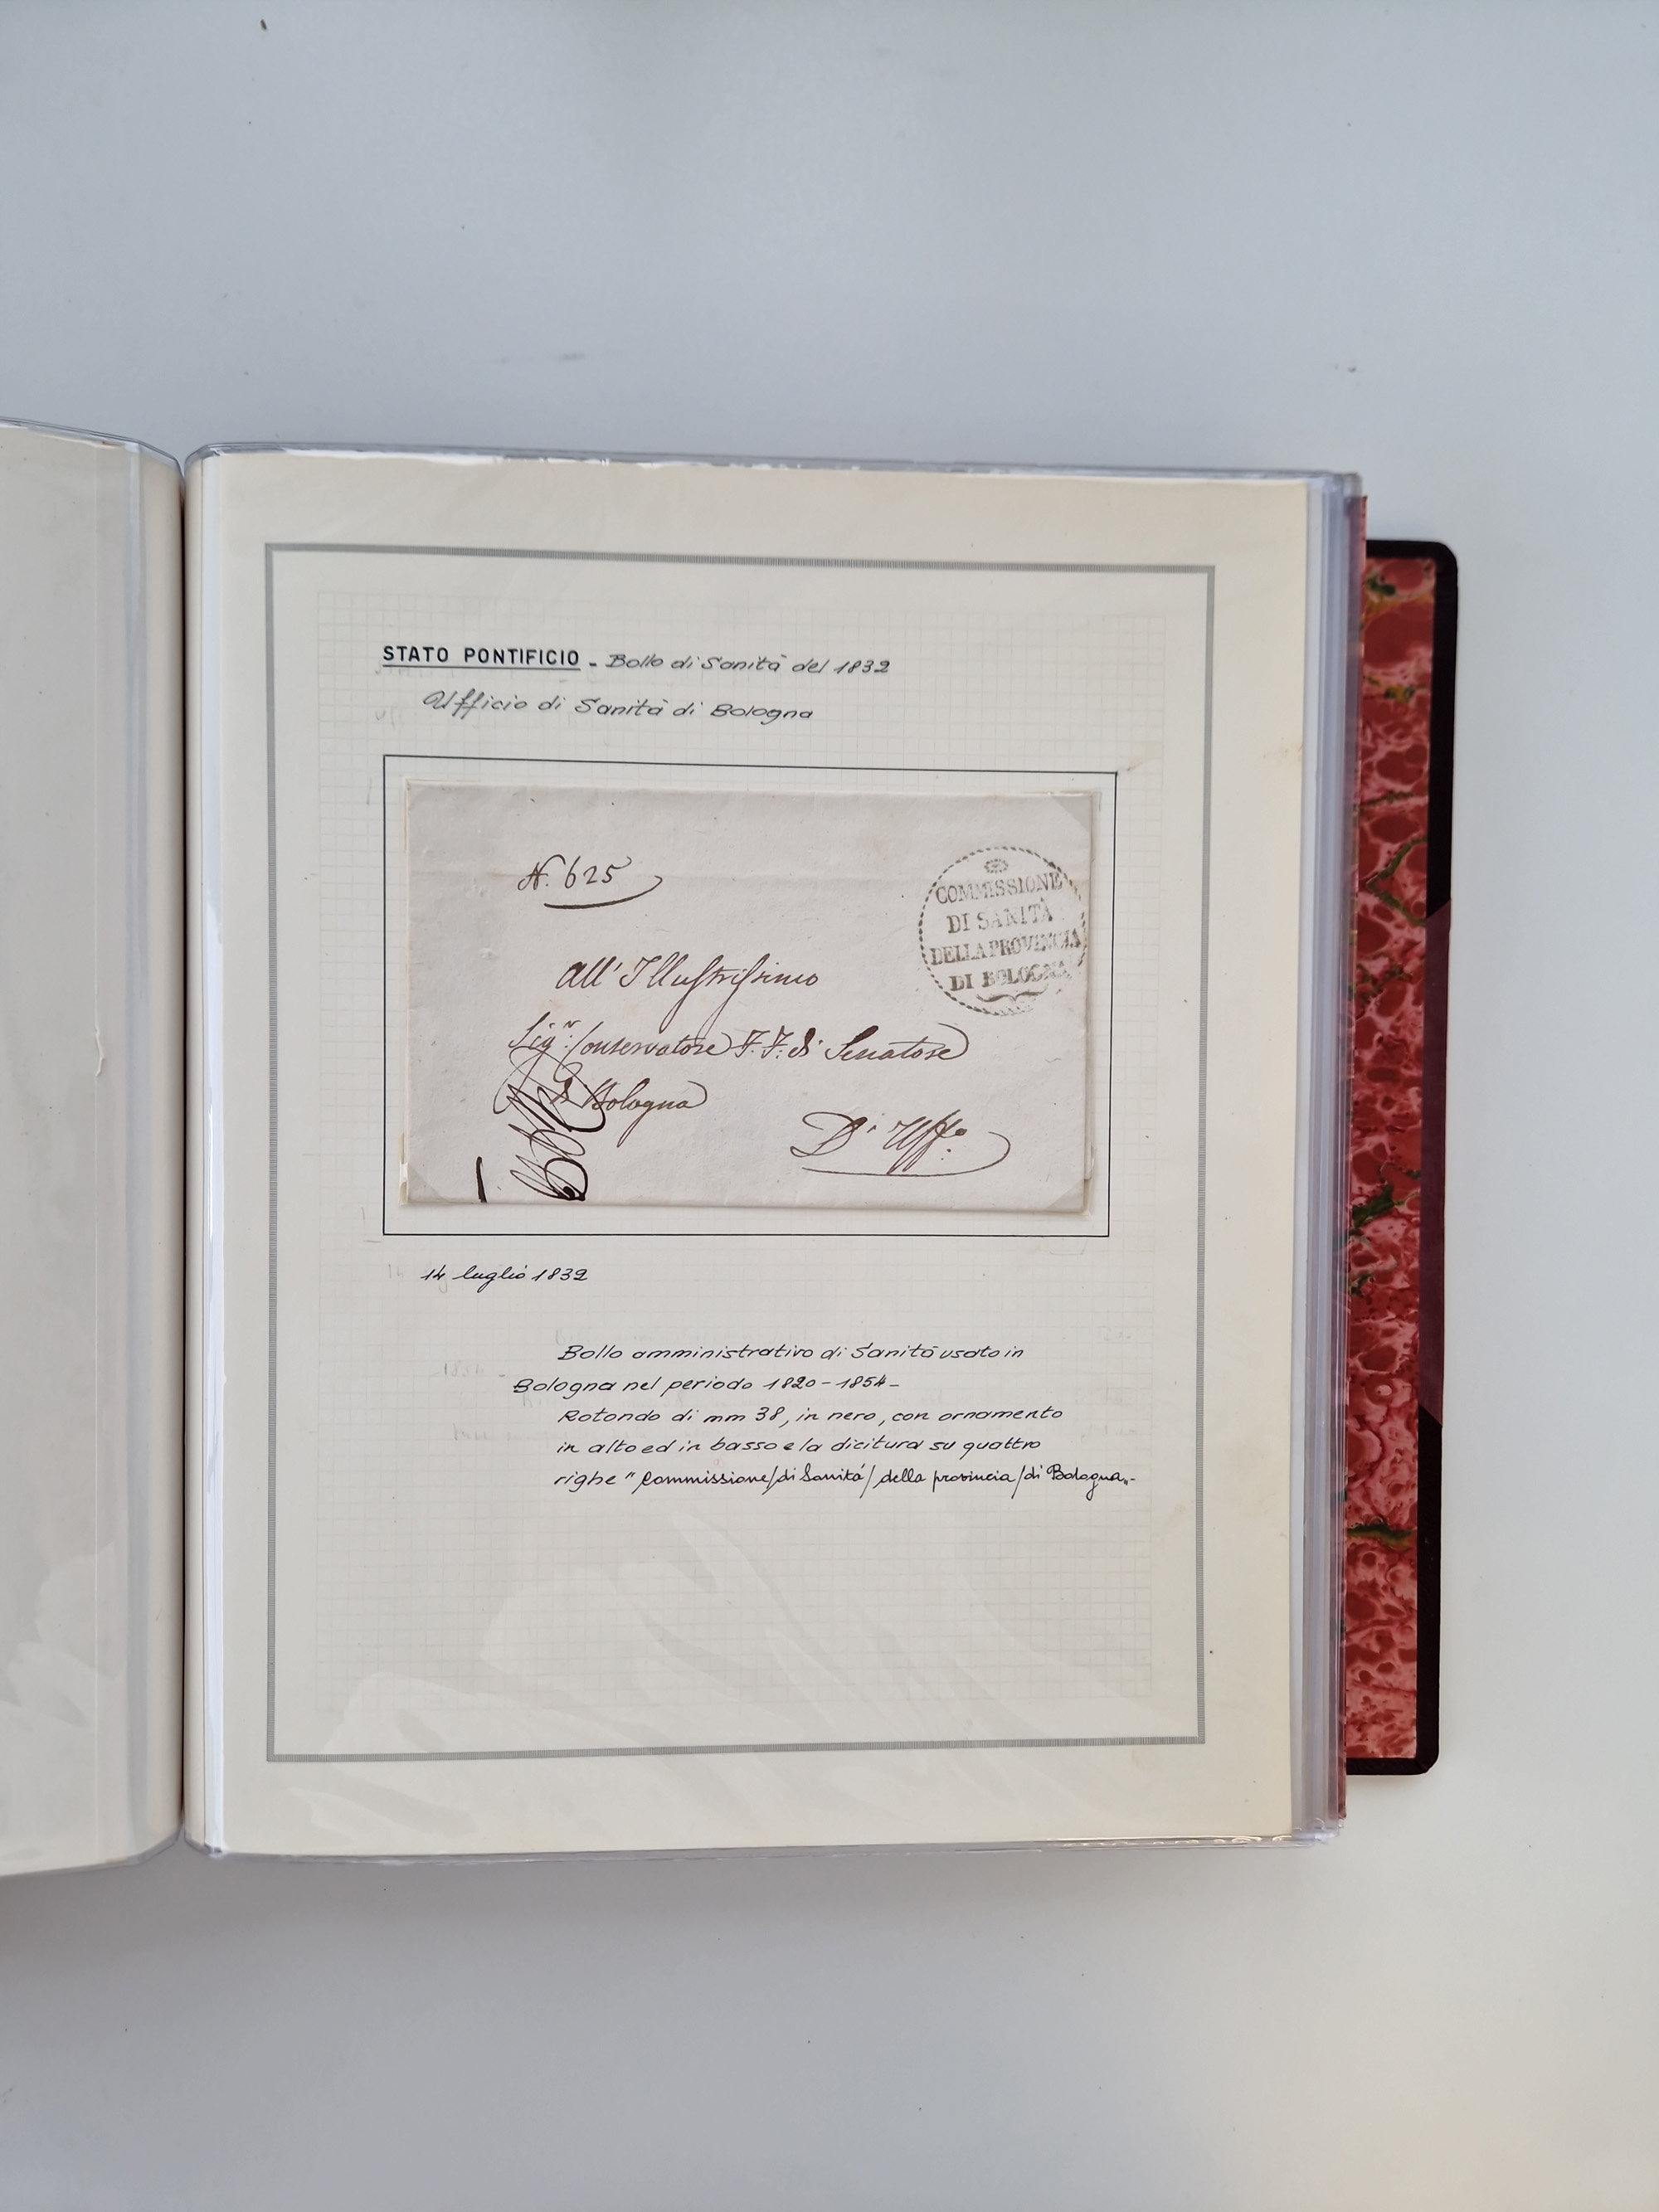 STATO PONTIFICIO - Bollo di Sanità del 1832
Ufficio di Sanità di Bologna
N. 625
COMMISSIONE
DI SANITÀ
DELLA PROVINCIA
DI BOLOGNA
All' Illustrissimo
Sig.r Conservatore F.F. di Senatore
di Bologna
D' Uff.o
14 luglio 1832
Bollo amministrativo di Sanità usato in
Bologna nel periodo 1820-1854-
Rotondo di mm 38, in nero, con ornamento
in alto ed in basso e la dicitura su quattro
righe "Commissione/di Sanità/della provincia/di Bologna"-